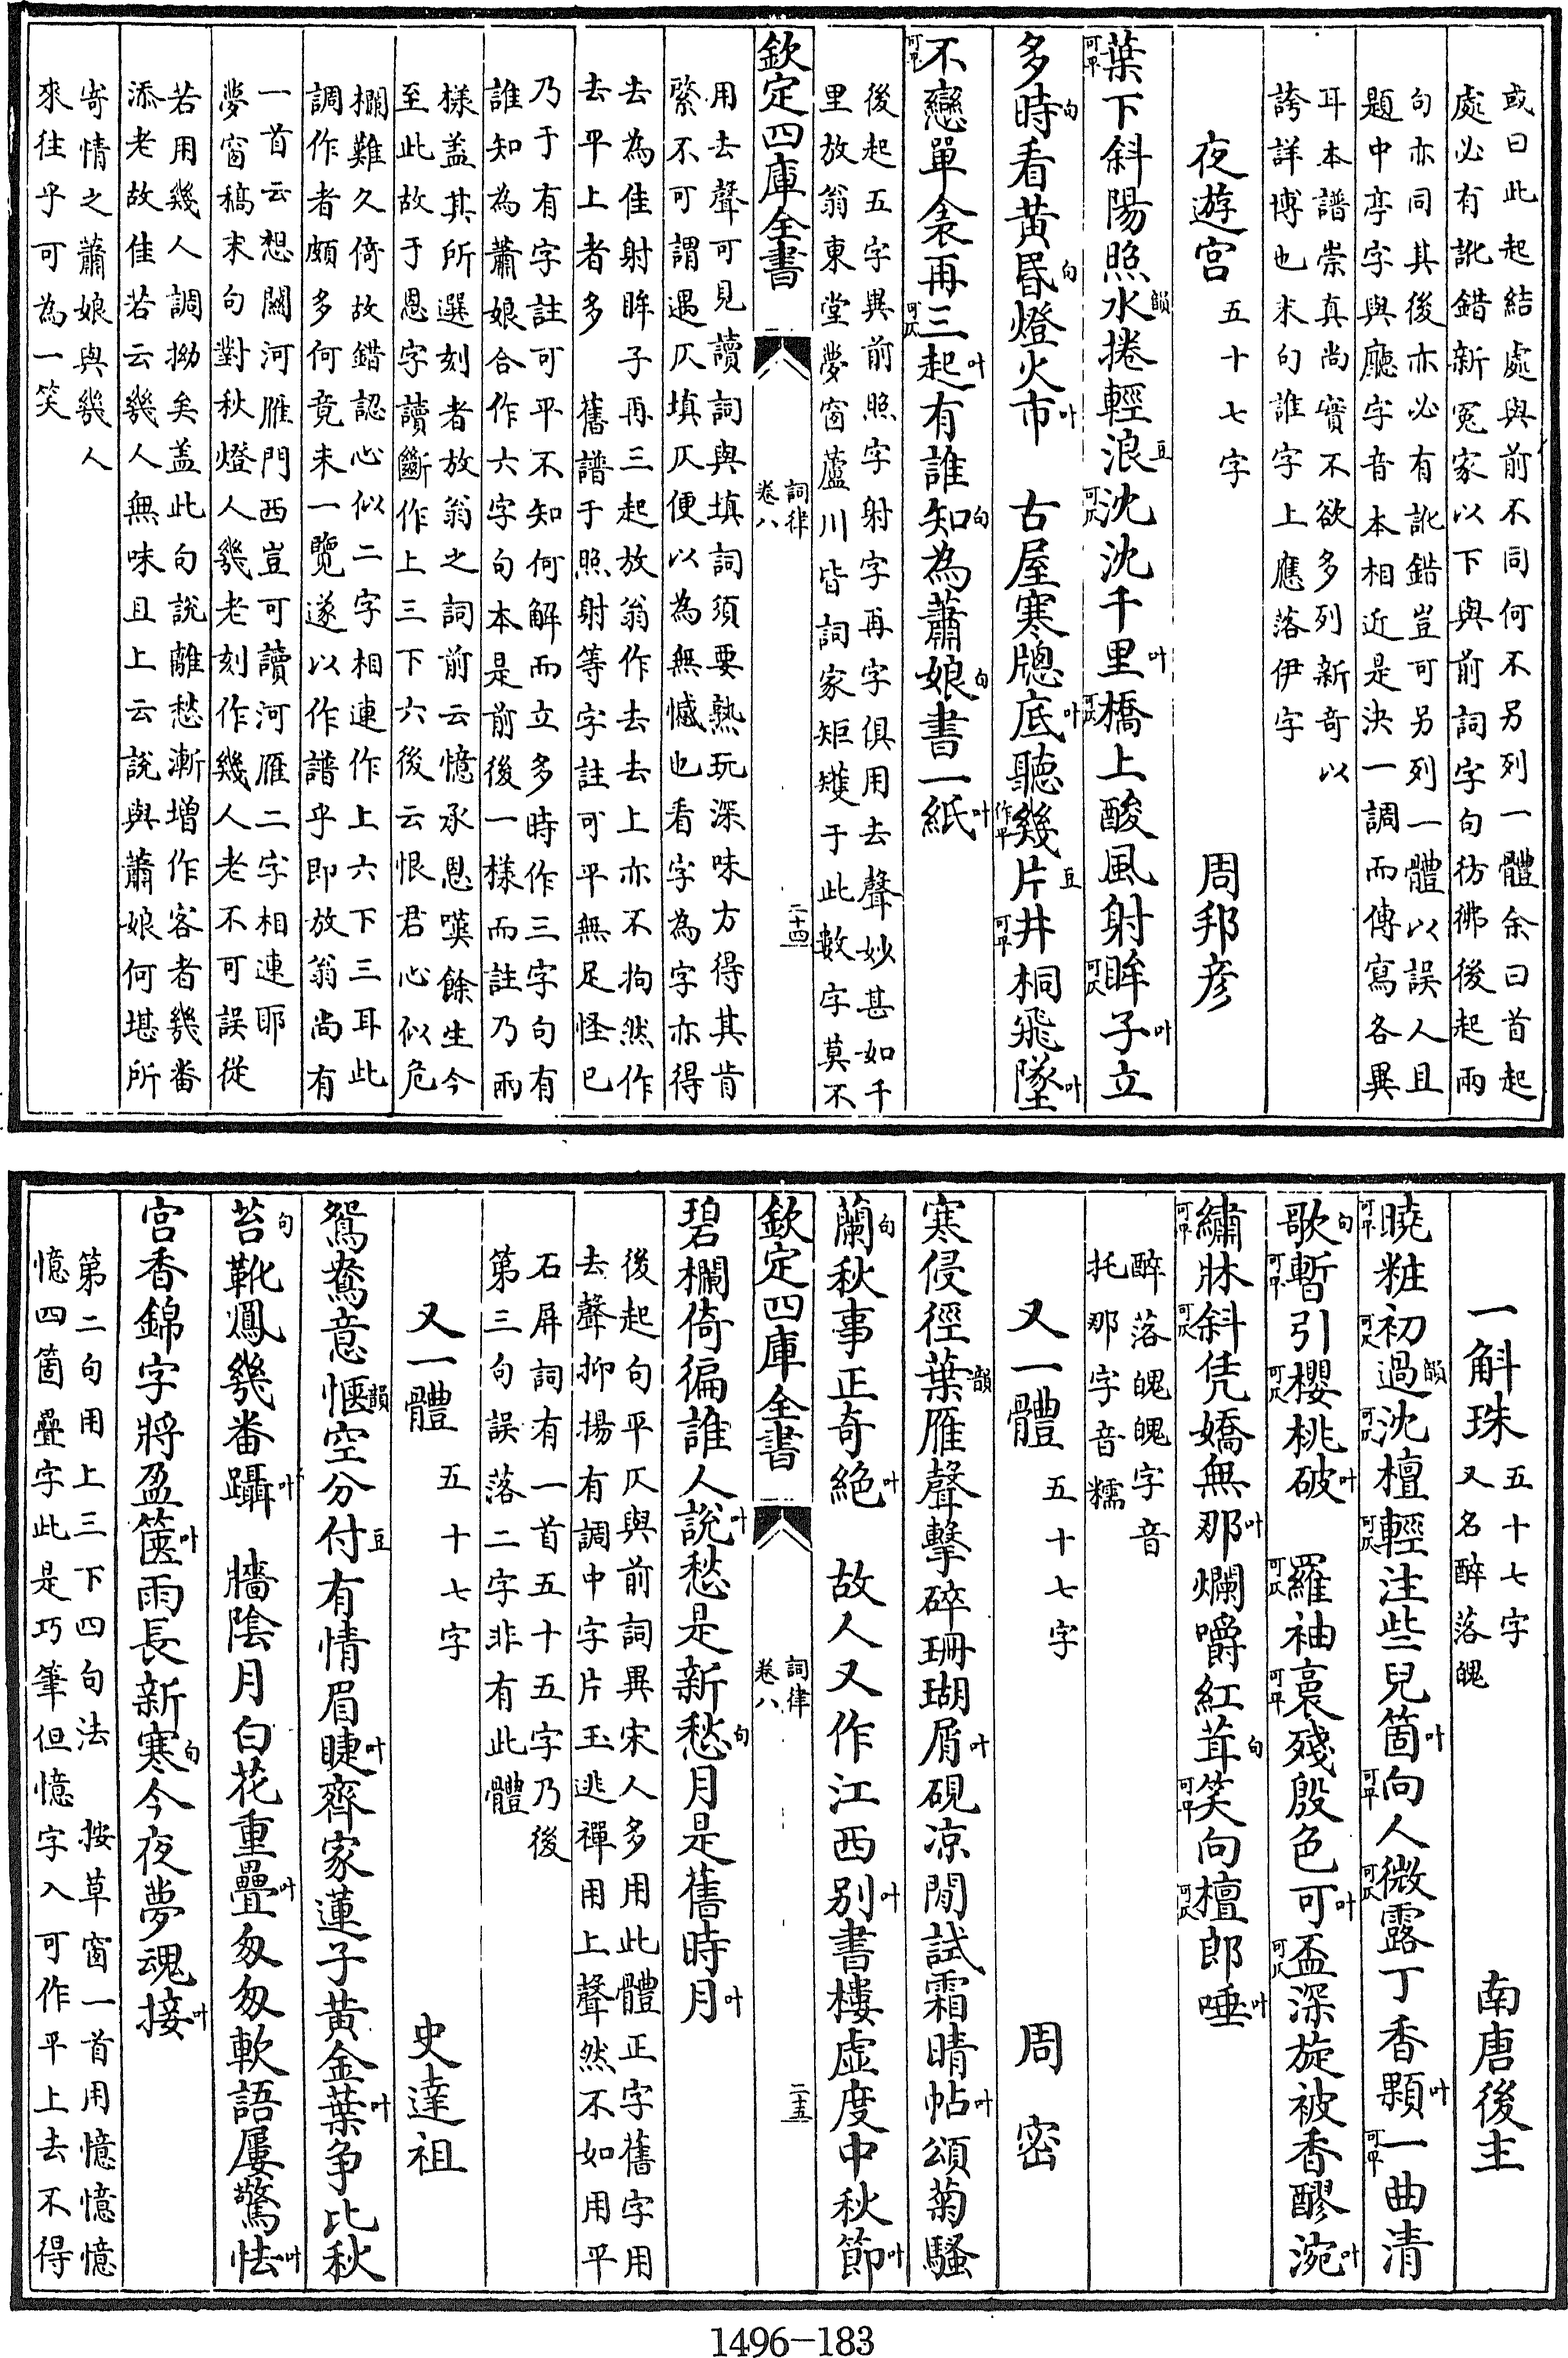 或曰此起結處與前不同何不另列一體余曰首起
處必有訛錯新冤家以下與前詞字句彷彿後起兩
句亦同其後亦必有訛錯豈可另列一體以誤人且
題中亭字與廳字音本相近是決一調而傳寫各異
耳本譜崇真尚實不欲多列新奇以
誇詳博也末句誰字上應落伊字
夜遊宮 五十七字 周邦彥
葉可平下斜陽照水韻捲輕浪豆沈可仄沈千里叶橋可仄上酸風射眸可仄子叶立
多時句看黃昏句燈火市叶 古屋寒牕底叶聽幾作平片豆井可平桐飛墜叶
不可平戀單衾再三可仄起叶有誰知句為蕭娘句書一紙叶
後起五字與前照字射字再字俱用去聲妙甚如千
里放翁東堂夢窗蘆川皆詞家矩矱于此數字莫不
欽定四庫全書 詞律 卷八 二十四
用去聲可見讀詞與填詞須要熟玩深味方得其肯
綮不可謂遇仄填仄便以為無憾也看字為字亦得
去為佳射眸子再三起放翁作去去上亦不拘然作
去平上者多 舊譜于照射等字註可平無足怪已
乃于有字註可平不知何解而立多時作三字句有
誰知為蕭娘合作六字句本是前後一樣而註乃兩
樣盖其所選刻者放翁之詞前云憶承恩嘆餘生今
至此故于恩字讀斷作上三下六後云恨君心似危
欄難久倚故錯認心似二字相連作上六下三耳此
調作者頗多何竟未一覽遂以作譜乎即放翁尚有
一首云想關河雁門西豈可讀河雁二字相連耶
夢窗稿末句對秋燈人幾老刻作幾人老不可誤從
若用幾人調拗矣盖此句說離愁漸增作客者幾番
添老故佳若云幾人無味且上云說與蕭娘何堪所
寄情之蕭娘與幾人
來往乎可為一笑
一斛珠 五十七字 又名醉落魄 南唐後主
曉可平粧初可仄過韻沈可仄檀輕可仄注些兒箇叶向可平人微可仄露丁香顆叶一可平曲清
歌句暫可平引櫻可仄桃破叶 羅可仄袖裛可平殘殷色可叶盃可仄深旋被香醪涴叶
繡可平牀斜可仄凭嬌無那叶爛嚼紅茸句笑可平向檀可仄郎唾叶
醉落魄魄字音
托那字音糯
又一體 五十七字 周密
寒侵徑葉韻雁聲擊碎珊瑚屑叶硯凉閒試霜晴帖叶頌菊騷
蘭句秋事正奇絕叶 故人又作江西别叶書樓虛度中秋節叶
欽定四庫全書 詞律 卷八 二十五
碧欄倚徧誰人說叶愁是新愁句月是舊時月叶
後起句平仄與前詞異宋人多用此體正字舊字用
去聲抑揚有調中字片玉逃禪用上聲然不如用平
石屏詞有一首五十五字乃後
第三句誤落二字非有此體
又一體 五十七字 史達祖
鴛鴦意愜韻空分付豆有情眉睫叶齊家蓮子黃金葉叶争比秋
苔句靴鳳幾番躡叶 牆陰月白花重疊叶匆匆軟語屢驚怯叶
宮香錦字將盈篋叶雨長新寒句今夜夢魂接叶
第二句用上三下四句法 按草窗一首用憶憶憶
憶四箇疊字此是巧筆但憶字入可作平上去不得
1496-183